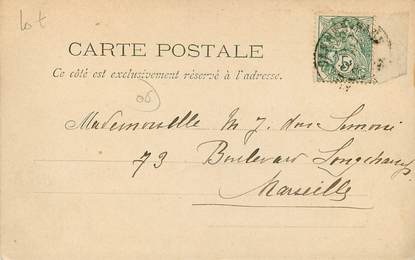 Lot
CARTE POSTALE
Ce côté est exclusivement réservé à l'adresse.
06
Mademoiselle M J. Simoni
73 Boulevard Longchamp
Marseille
5